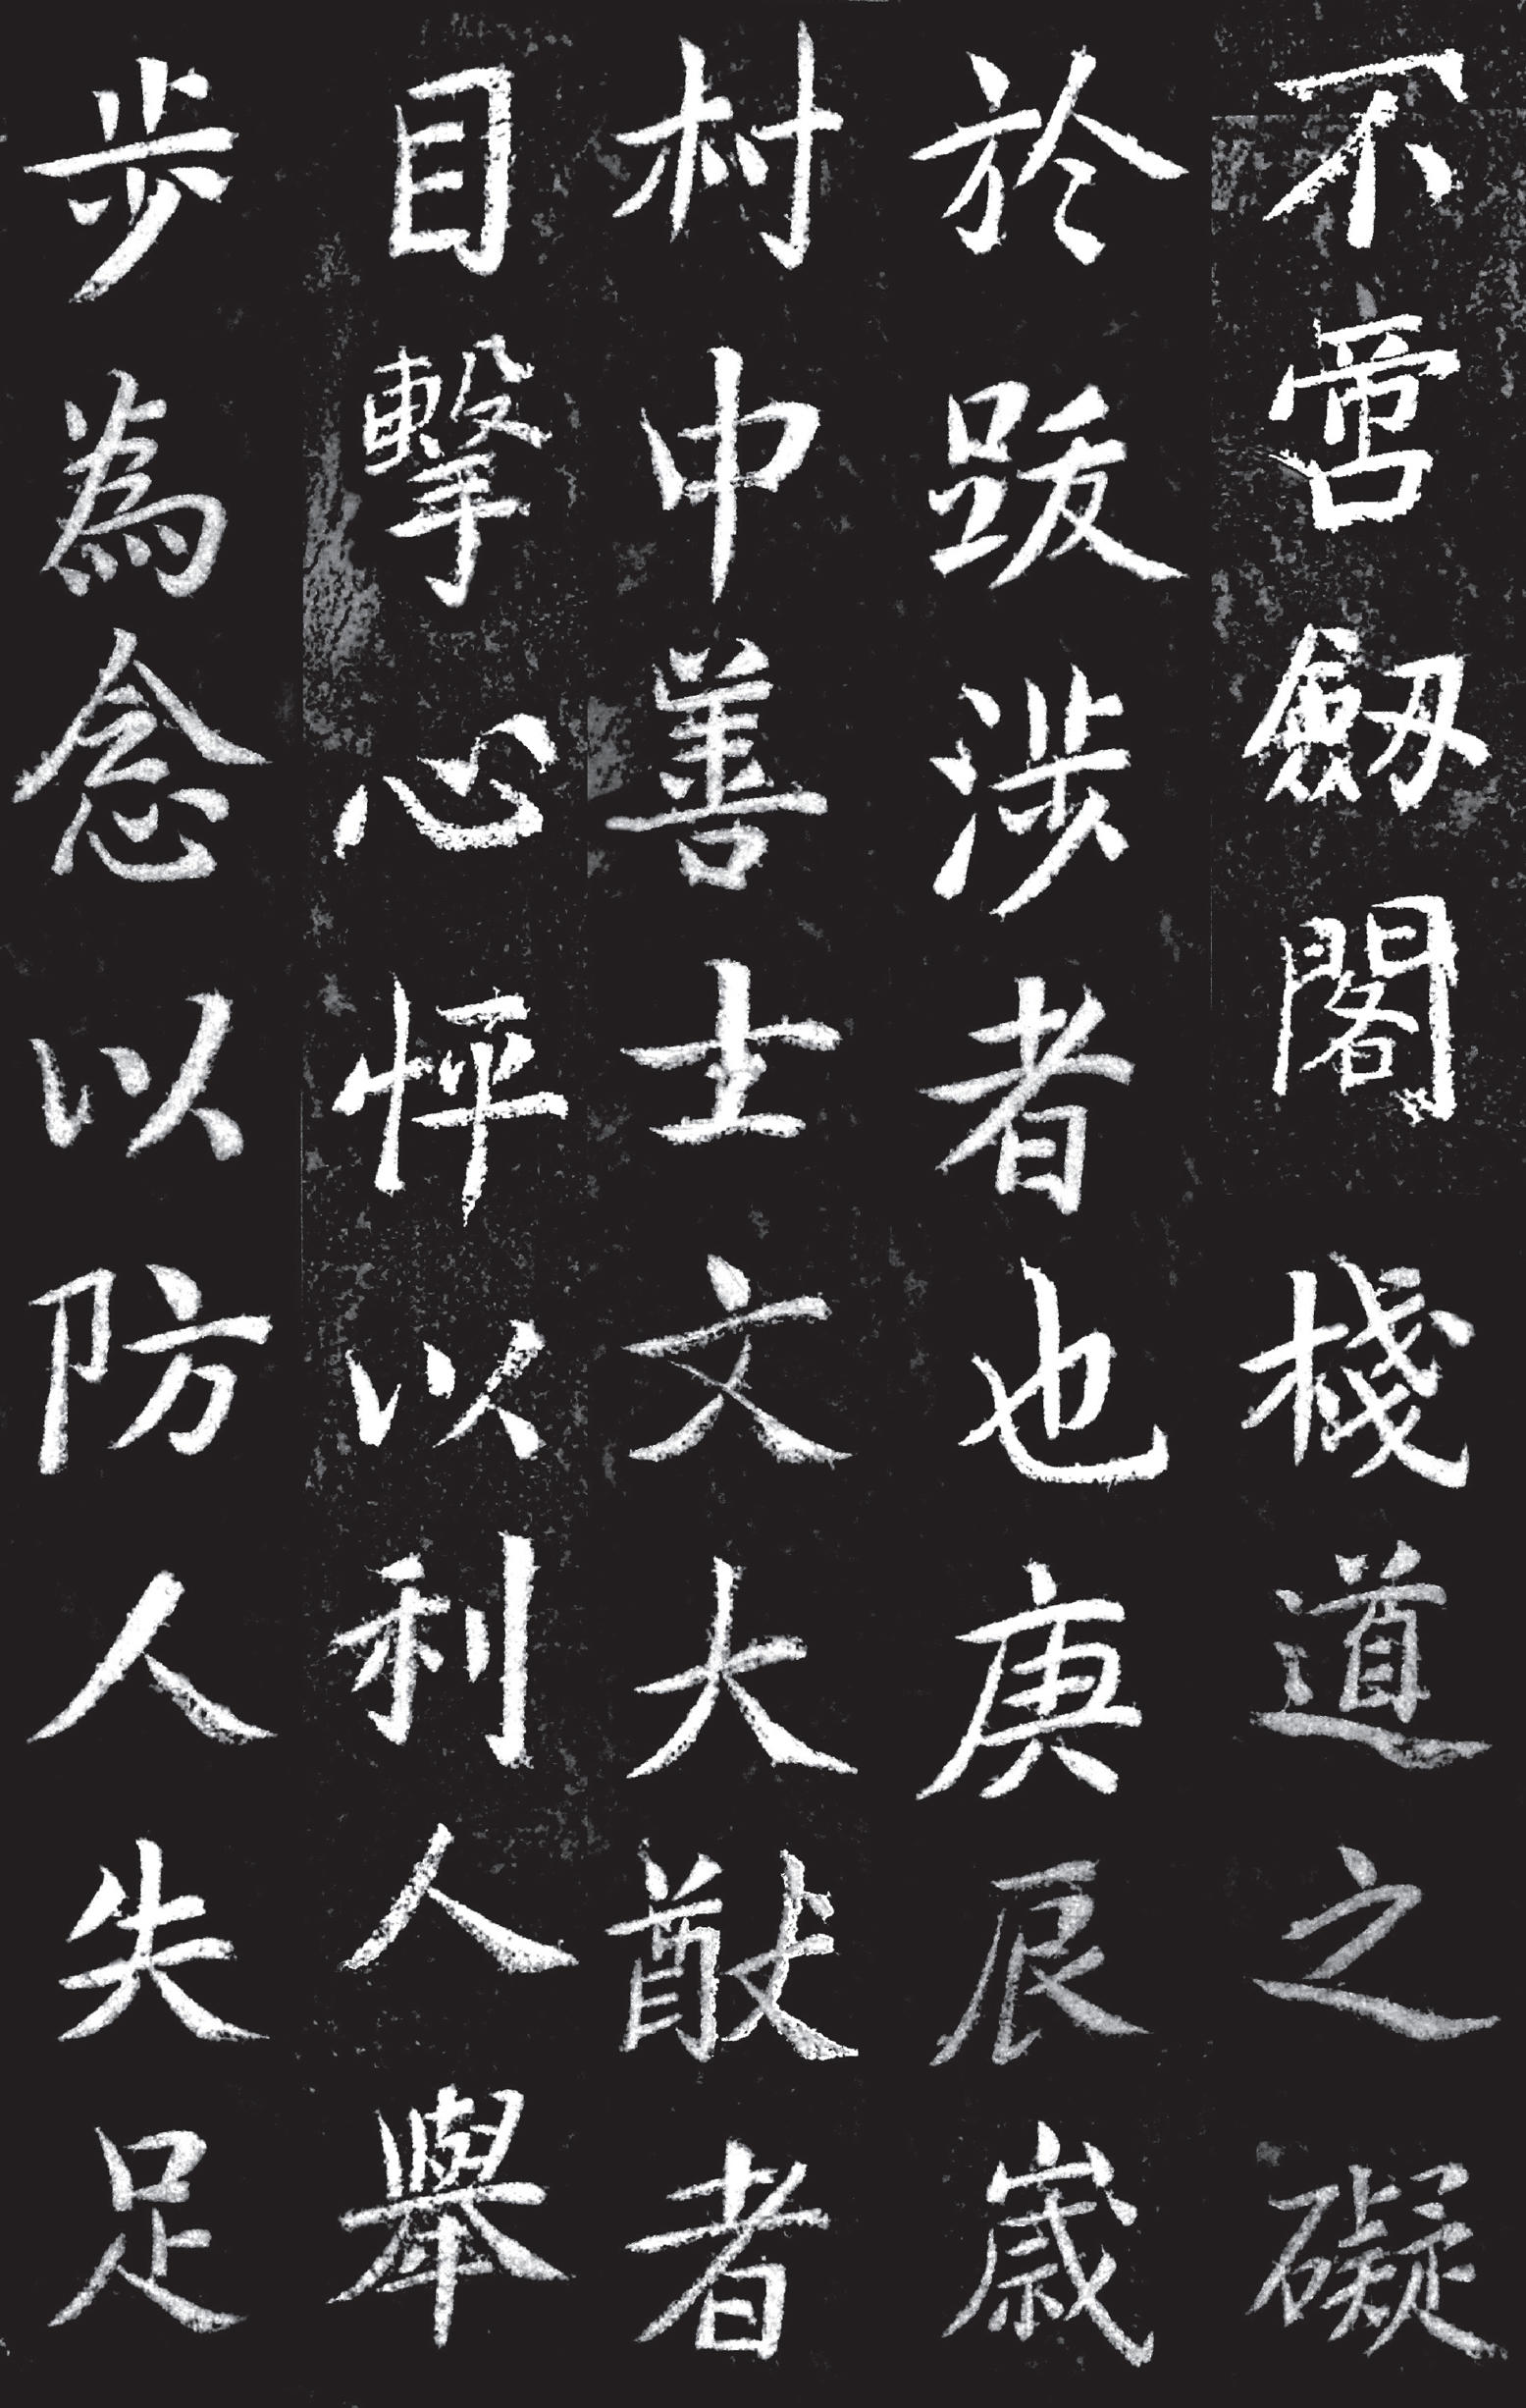 不啻劒閣棧道之礙
於跋涉者也庚辰歳
村中善士文大猷者
目擊心怦以利人舉
步為念以防人失足